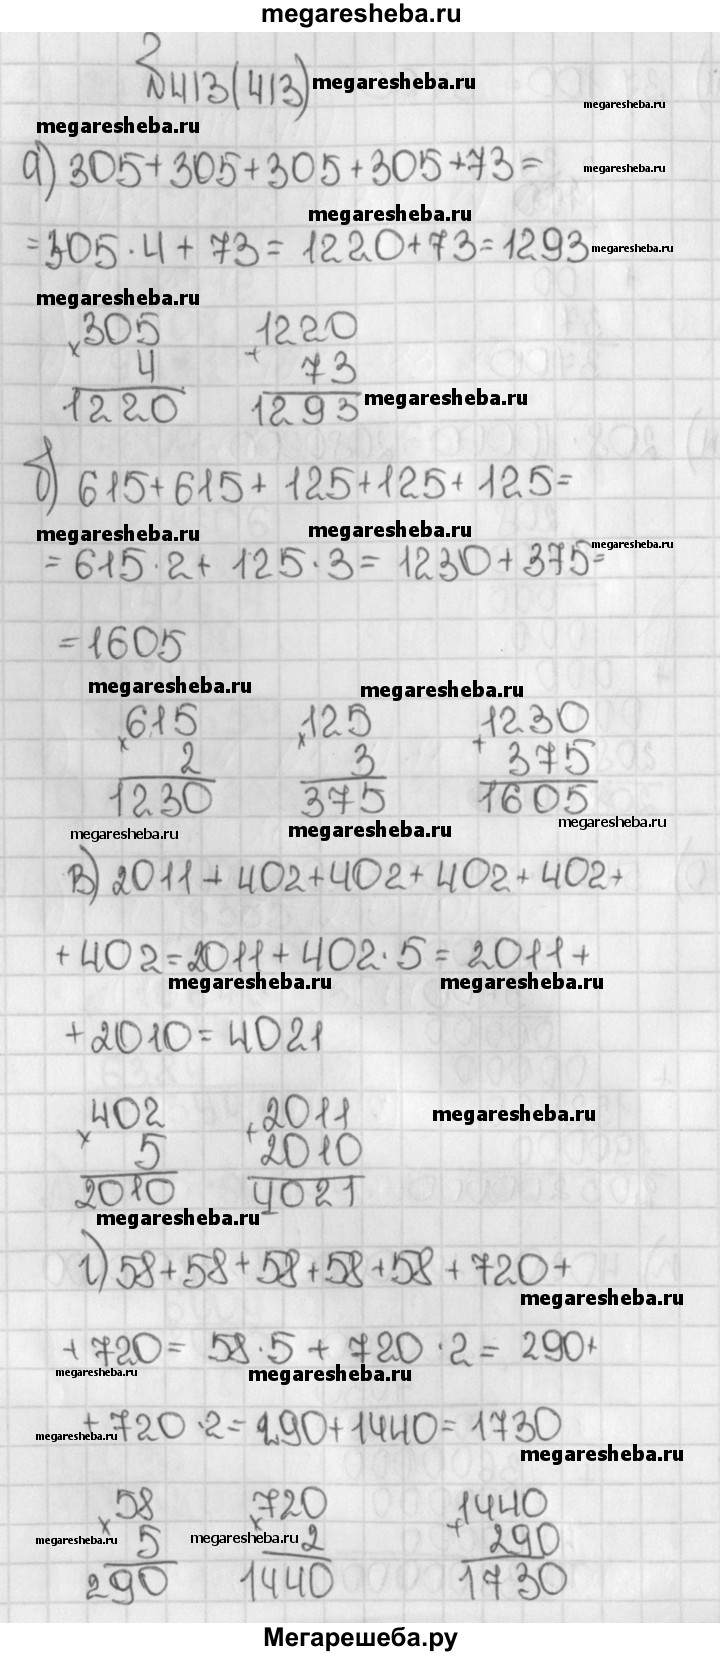 megaresheba.ru
№413(413) megaresheba.ru megaresheba.ru
megaresheba.ru
а) 305+305+305+305+73= megaresheba.ru
megaresheba.ru
=305·4+73=1220+73=1293 megaresheba.ru
megaresheba.ru
305 1220
× 4 + 73
1220 1293 megaresheba.ru
б) 615+615+125+125+125=
megaresheba.ru megaresheba.ru megaresheba.ru
=615·2+125·3=1230+375=
=1605
megaresheba.ru megaresheba.ru
615 125 1230
× 2 × 3 + 375
1230 375 1605
megaresheba.ru megaresheba.ru megaresheba.ru
в) 2011+402+402+402+402+
+402=2011+402·5=2011+
megaresheba.ru megaresheba.ru
+2010=4021
402 2011 megaresheba.ru
× 5 + 2010
2010 4021
megaresheba.ru
г) 58+58+58+58+58+720+
megaresheba.ru
+720=58·5+720·2=290+
megaresheba.ru megaresheba.ru
+720·2=290+1440=1730
megaresheba.ru megaresheba.ru
58 720 1440
× 5 × 2 + 290
megaresheba.ru megaresheba.ru
290 1440 1730
Мегарешеба.ру